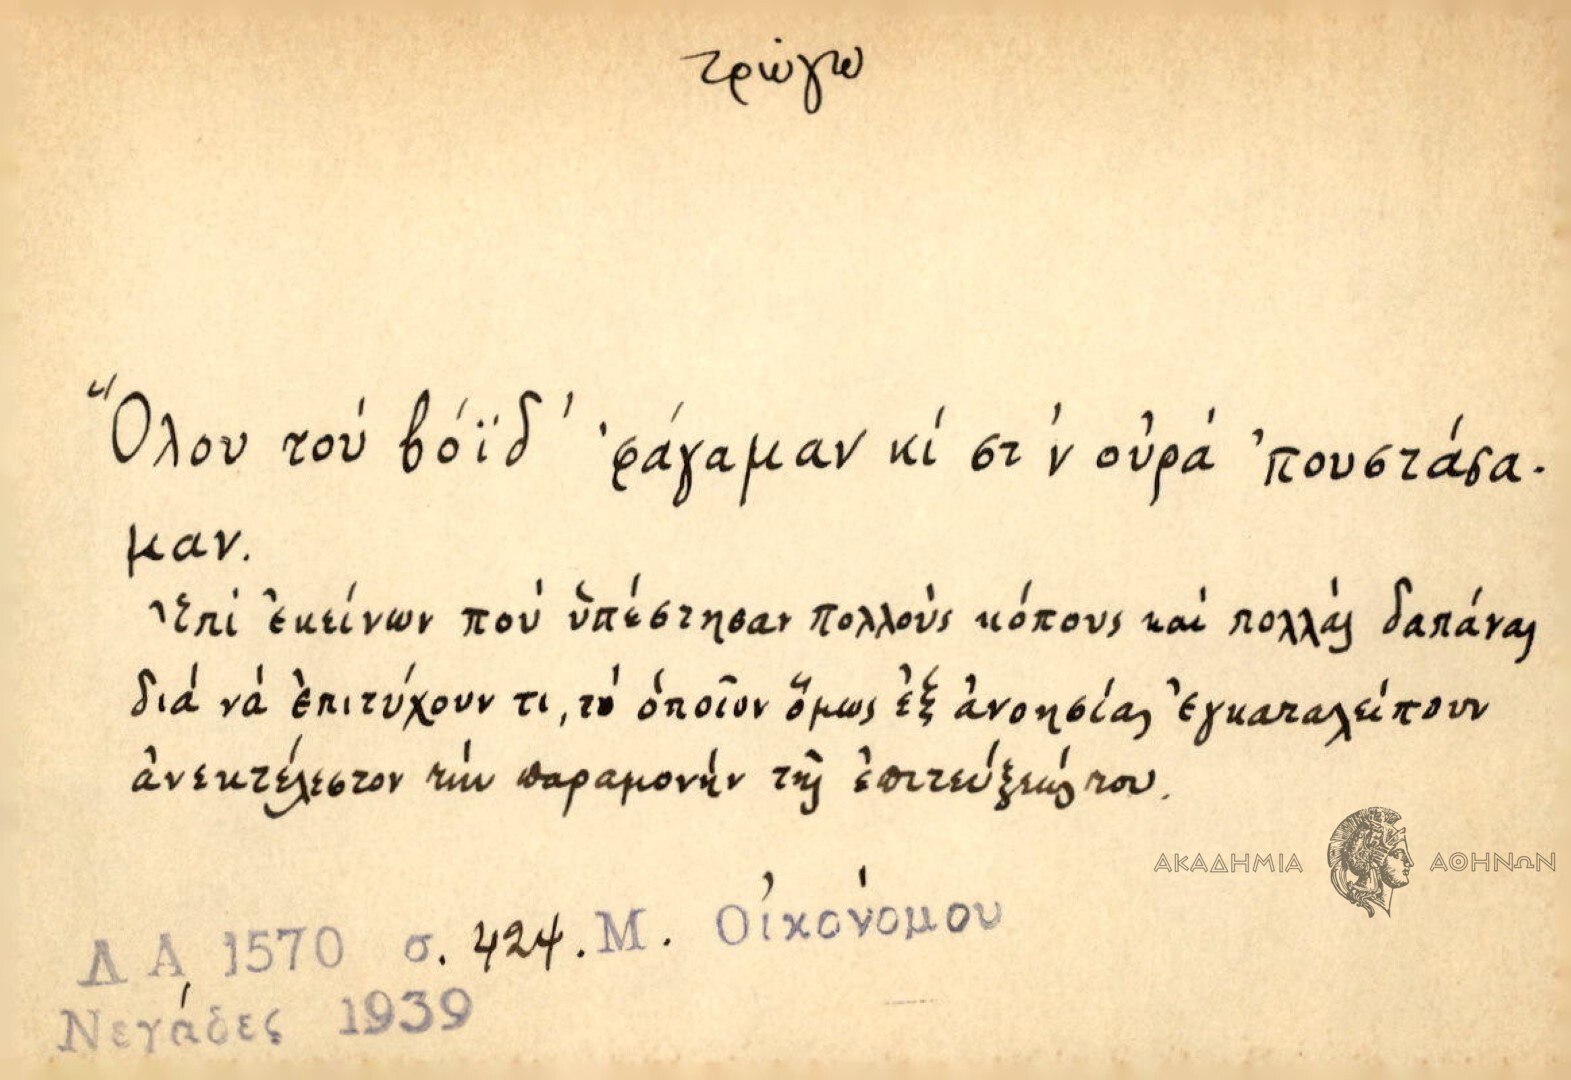 τρώγω
Ὅλου τοὺ βόϊδ' 'φάγαμαν κὶ στ'ν οὐρὰ 'πουστάσα-
μαν.
Ἐπὶ ἐκείνων ποὺ ὑπέστησαν πολλοὺς κόπους καὶ πολλὰς δαπάνας
διὰ νὰ ἐπιτύχουν τι, τὸ ὁποῖον ὅμως ἐξ ἀνοησίας ἐγκαταλείπουν
ἀνεκτέλεστον τὴν παραμονὴν τῆς ἐπιτεύξεώς του.
ΑΚΑΔΗΜΙΑ ΑΘΗΝΩΝ
Λ Α 1570 σ. 424. Μ. Οἰκονόμου
Νεγάδες 1939